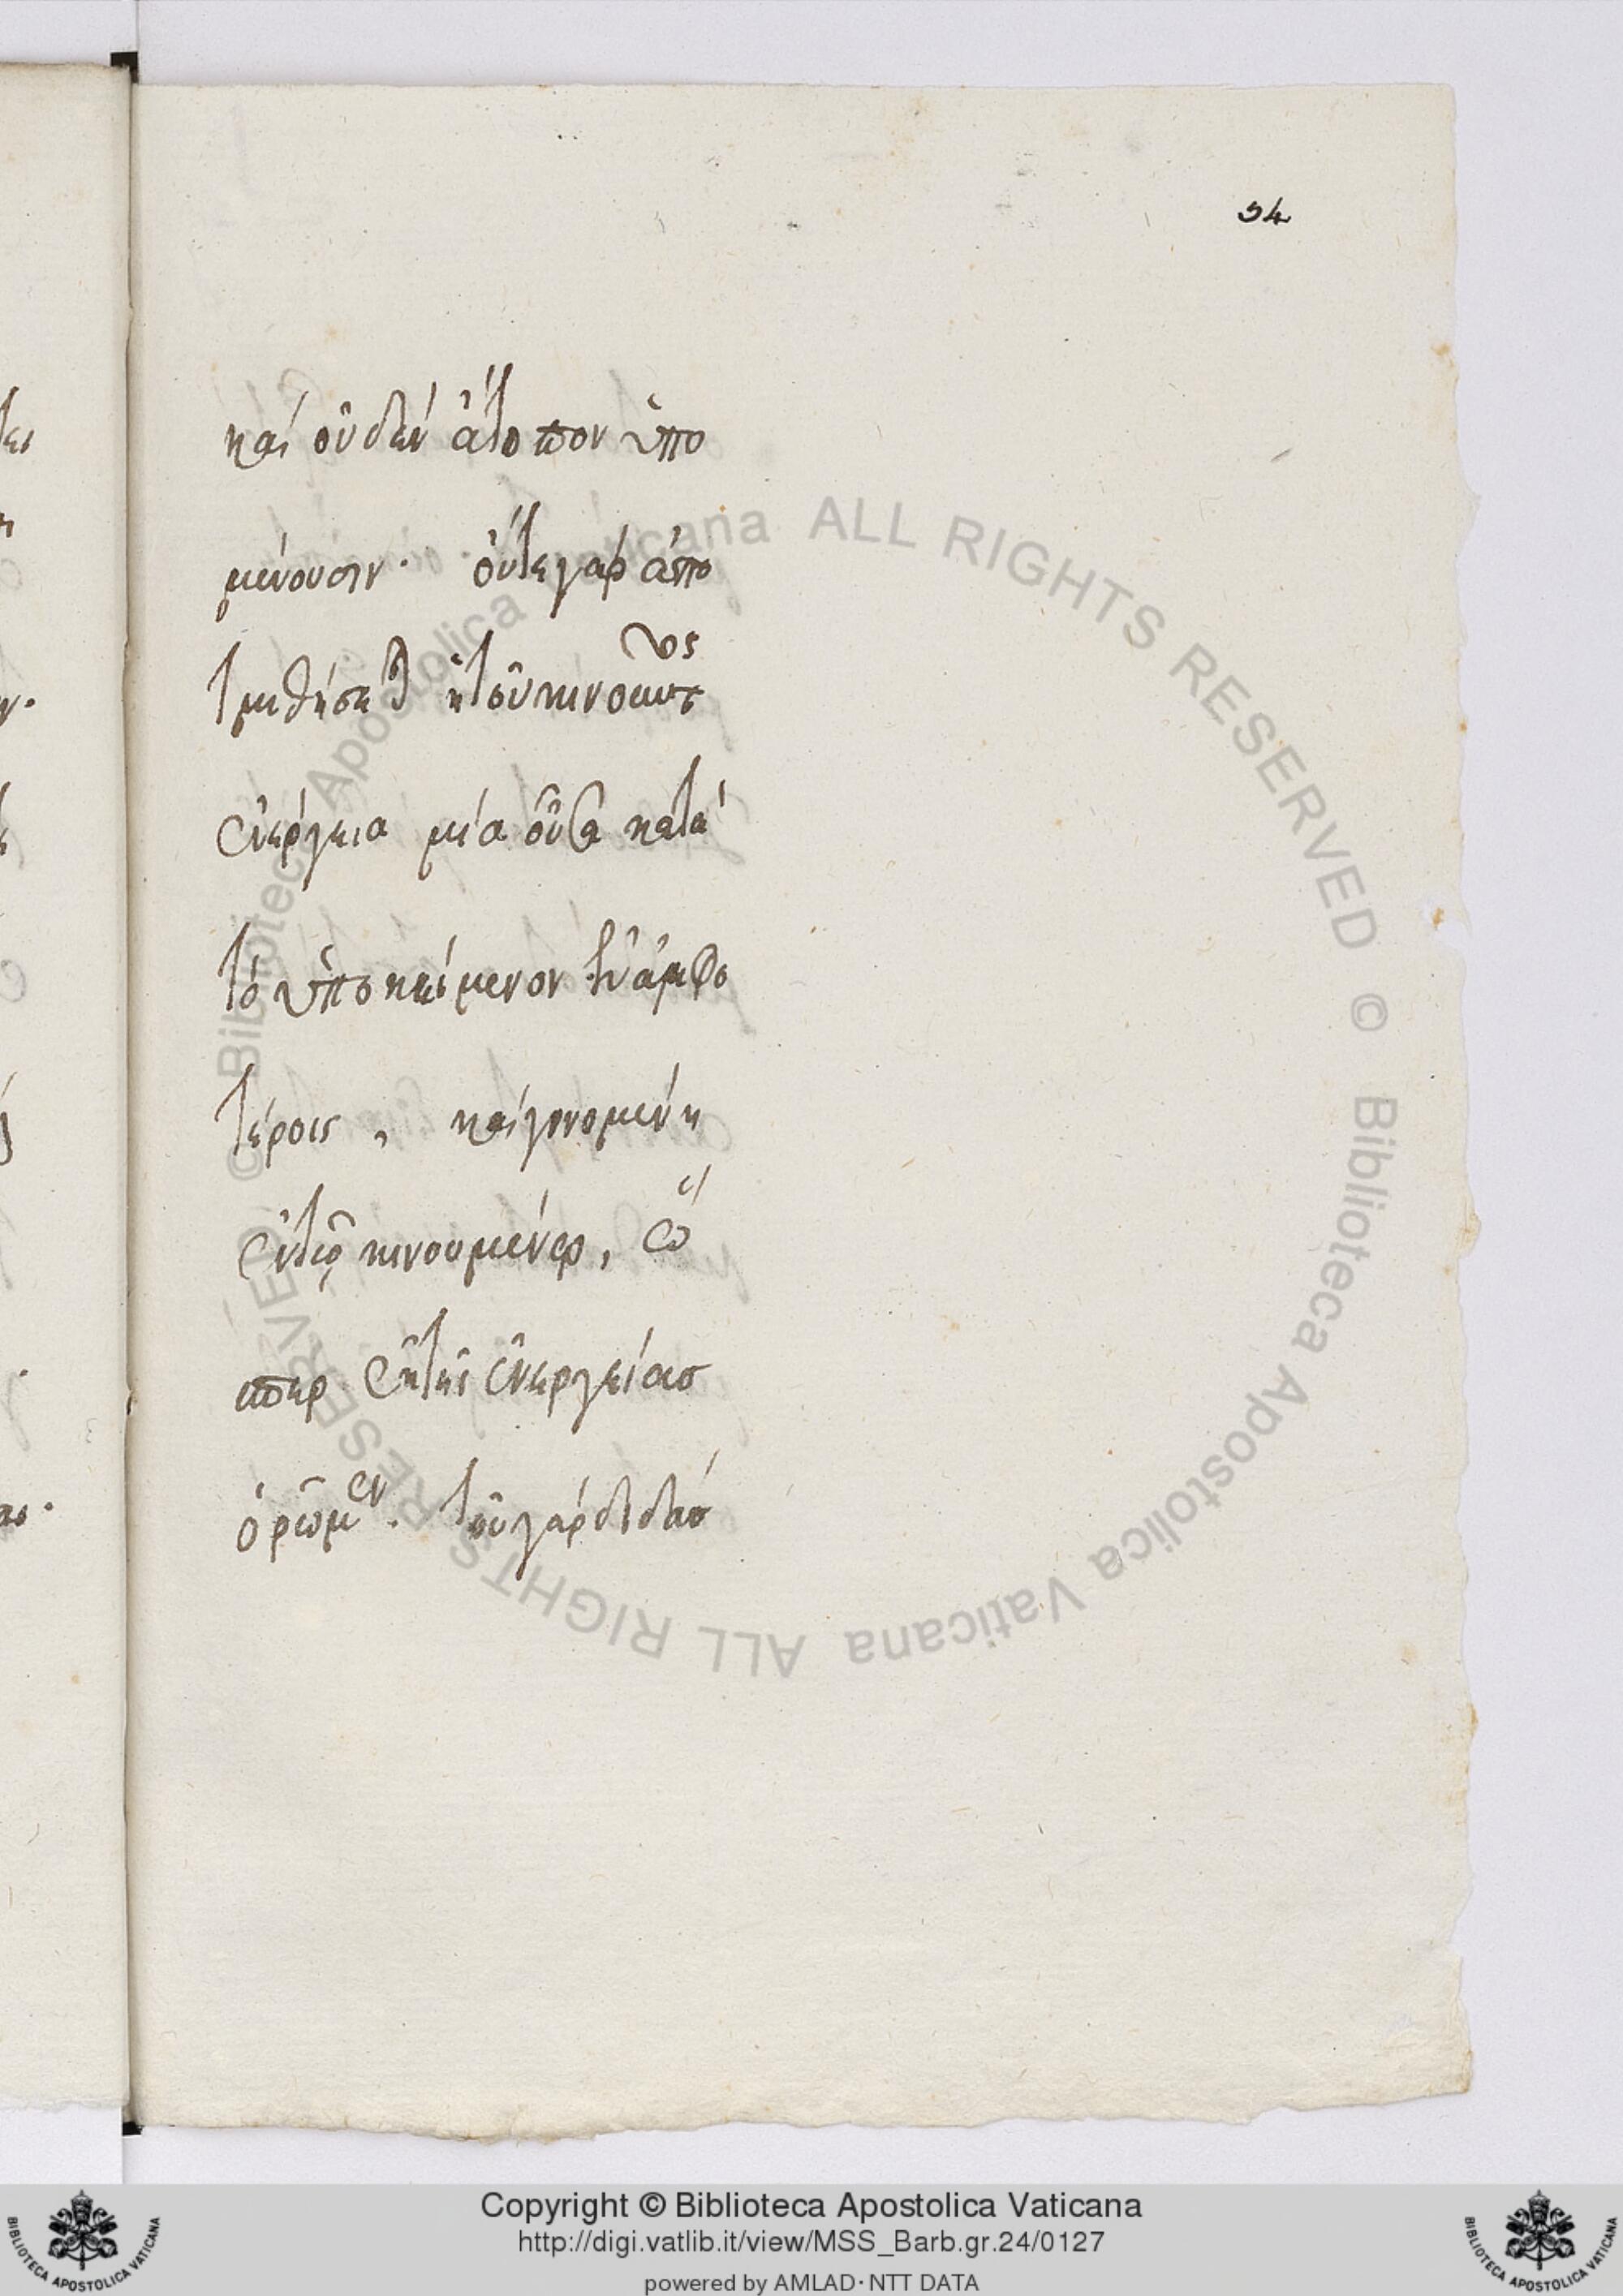 54
καί οὐδὲν ἄτοπον ὑπο
μένουσιν. οὔτε γαρ ἀπο
τμηθήσεται ἡ τοῦ κινοῦντος
ἐνέργεια μία οὖσα κατά
τὸ ὑποκείμενον ἐν ἀμφο
τέροις, καί γινομένη
ἐν τῷ κινουμένῳ, ὥ
σπερ ἐκ τῆς ἐνεργείας
ὁρῶμεν. τοῦ γάρ διδασ
© Biblioteca Apostolica Vaticana ALL RIGHTS RESERVED © Biblioteca Apostolica Vaticana ALL RIGHTS RESERVED
Copyright © Biblioteca Apostolica Vaticana
http://digi.vatlib.it/view/MSS_Barb.gr.24/0127
powered by AMLAD·NTT DATA
BIBLIOTECA APOSTOLICA VATICANA
BIBLIOTECA APOSTOLICA VATICANA